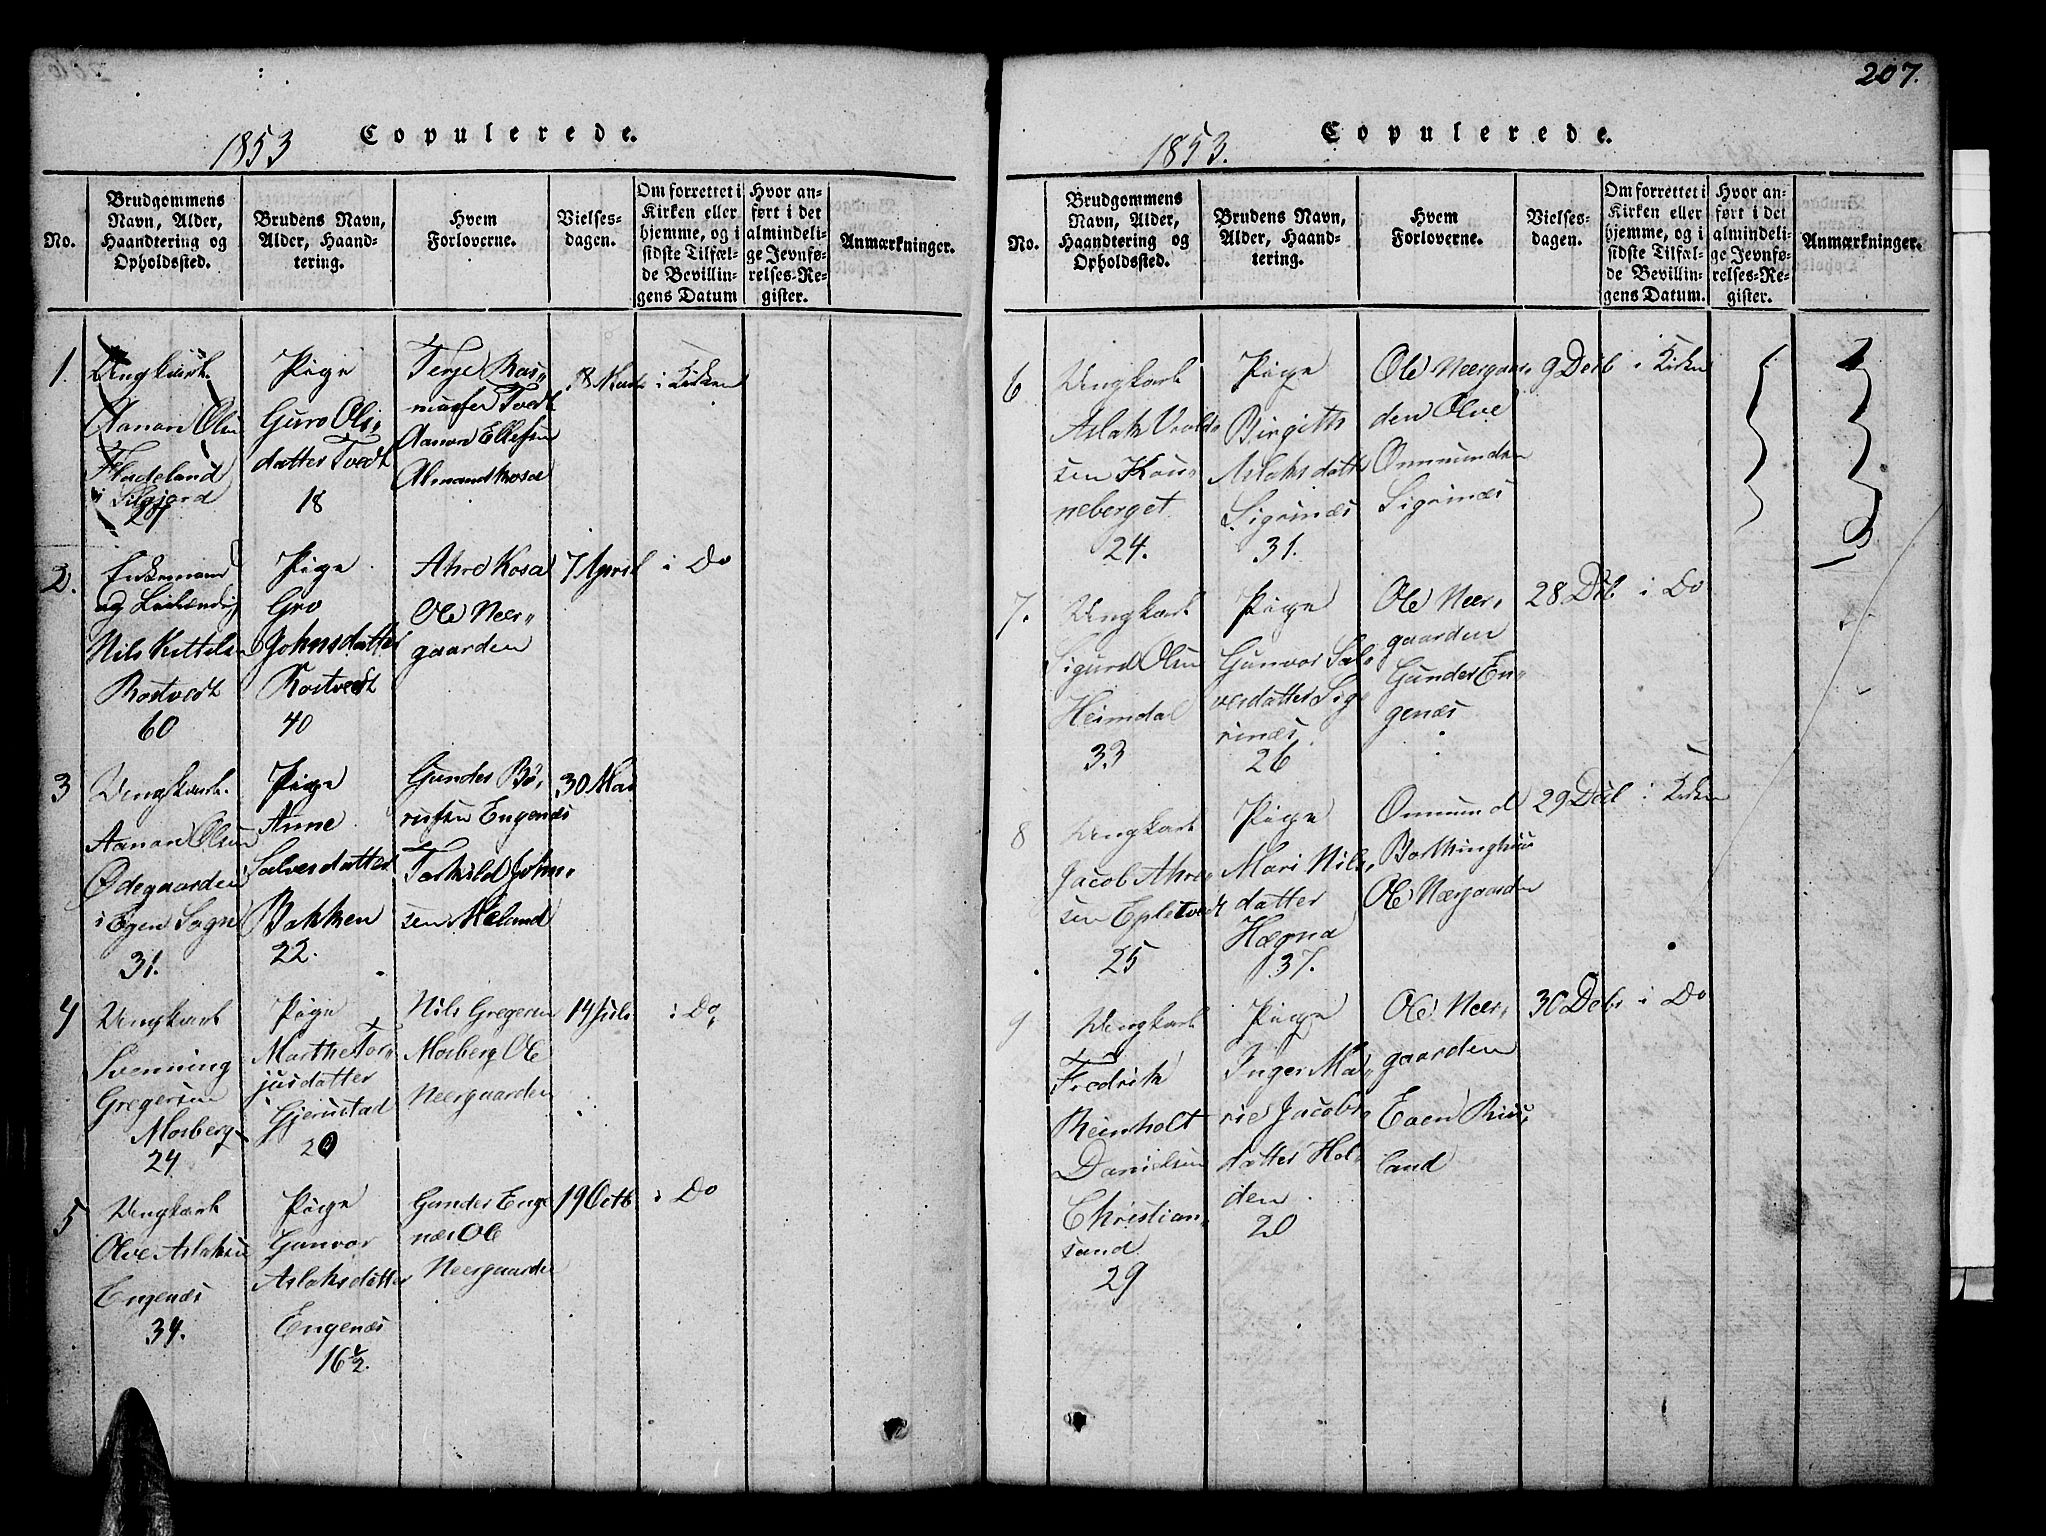 207.
1853 Copulerede.
No.
Brudgommens
Navn, Alder,
Haandtering og
Opholdssted.
Brudens Navn,
Alder, Haand-
tering.
Hvem
Forloverne.
Vielses-
dagen.
Om forrettet i
Kirken eller
hjemme, og i
sidste Tilfæl-
de Bevillin-
gens Datum
Hvor an-
ført i det
almindeli-
ge Jevnfø-
relses-Re-
gister.
Anmærkninger.
1.
Ungkarl
Aanon Olsen
Fladeland
i Siljord
27
Pige
Guro Ols-
datter Tvedt
18
Terje Ras-
mussen Tvedt
Aanon Ellefsen
Almandkosa
i Kirken
2.
Enkemand
og
Nils Kittelsen
Rostvedt
60
Pige
Gro
Johnsdatter
Rostvedt
40
Ahre Kosa
Ole Neer-
gaarden
7 April
i Do
3
Ungkarl
Aanon Olsen
Ødegaarden
i Egen Sogn
31.
Pige
Anne
Salvesdatter
Bakken
22.
Gunder Bø-
Engenæs
Torkild John-
sen Mølund
30 Mai
4
Ungkarl
Svenning
Gregersen
Mosberg
24
Pige
Marthe Tor-
jusdatter
Gjerustad
20
Nils Gregersen
Mosberg Ole
Neergaarden
14 Juli
i Do
5
Ungkarl
Olve Aslaksen
Engenæs
34.
Pige
Gunvor
Aslaksdatter
Engenæs
16½.
Gunder Enge
næs Ole
Neergaarden
19 Octb
i Do
1853. Copulerede.
No.
Brudgommens
Navn, Alder,
Haandtering og
Opholdssted.
Brudens Navn,
Alder, Haand-
tering.
Hvem
Forloverne.
Vielses-
dagen.
Om forrettet i
Kirken eller
hjemme, og i
sidste Tilfæl-
de Bevillin-
gens Datum.
Hvor an-
ført i det
almindeli-
ge Jevnfø-
relses-Re-
gister.
Anmærkninger.
6
Ungkarl
Aslak Vrold-
sen Kou-
neberget
24.
Pige
Birgitte
Aslaksdatter
Sigrinæs
31.
Ole Neergaar-
den Olve
Onmundsen
Sigrinæs
9 Decb
i Kirken
7.
Ungkarl
Sigurd Olsen
Heimdal
33
Pige
Gunvor Sal-
vesdatter Sig-
rinæs
26
Ole Neer-
gaarden
Gunder En-
genæs
28 Decb
i Do
8
Ungkarl
Jacob Ahre-
sen Epletvedt
25
Pige
Mari Nils-
datter
Hægna
37.
Onmund
Borkinghuus
Ole Neergaarden
29 Decb
i Kirken
9
Ungkarl
Fredrik
Reinholt
Danielsen
Christian-
sand
29
Pige
Inger Ma-
rie Jacobs-
datter Hol-
den
20
Ole Neer-
gaarden
Even Riis-
land
30 Decb
i Do